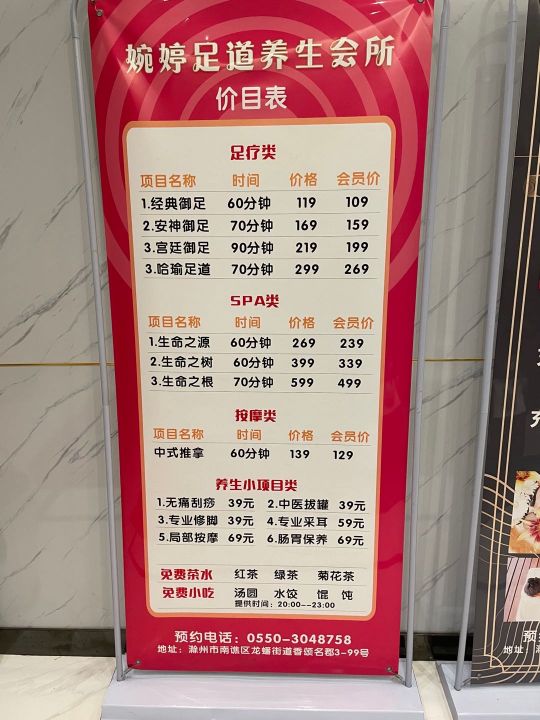 婉婷足道养生会所
价目表
足疗类
项目名称 时间 价格 会员价
1.经典御足 60分钟 119 109
2.安神御足 70分钟 169 159
3.宫廷御足 90分钟 219 199
3.哈瑜足道 70分钟 299 269
SPA类
项目名称 时间 价格 会员价
1.生命之源 60分钟 269 239
2.生命之树 60分钟 399 339
3.生命之根 70分钟 599 499
按摩类
项目名称 时间 价格 会员价
中式推拿 60分钟 139 129
养生小项目类
1.无痛刮痧 39元 2.中医拔罐 39元
3.专业修脚 39元 4.专业采耳 59元
5.局部按摩 69元 6.肠胃保养 69元
免费茶水 红茶 绿茶 菊花茶
免费小吃 汤圆 水饺 馄饨
提供时间：20:00--23:00
预约电话：0550-3048758
地址：滁州市南谯区龙蟠街道香颂名郡3-99号
充